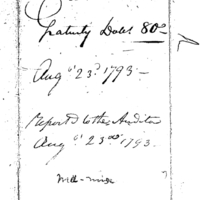 Gratuity Dolls 80
Augt 23d 1793 —
Report to the Auditor
Augt 23d 1793.